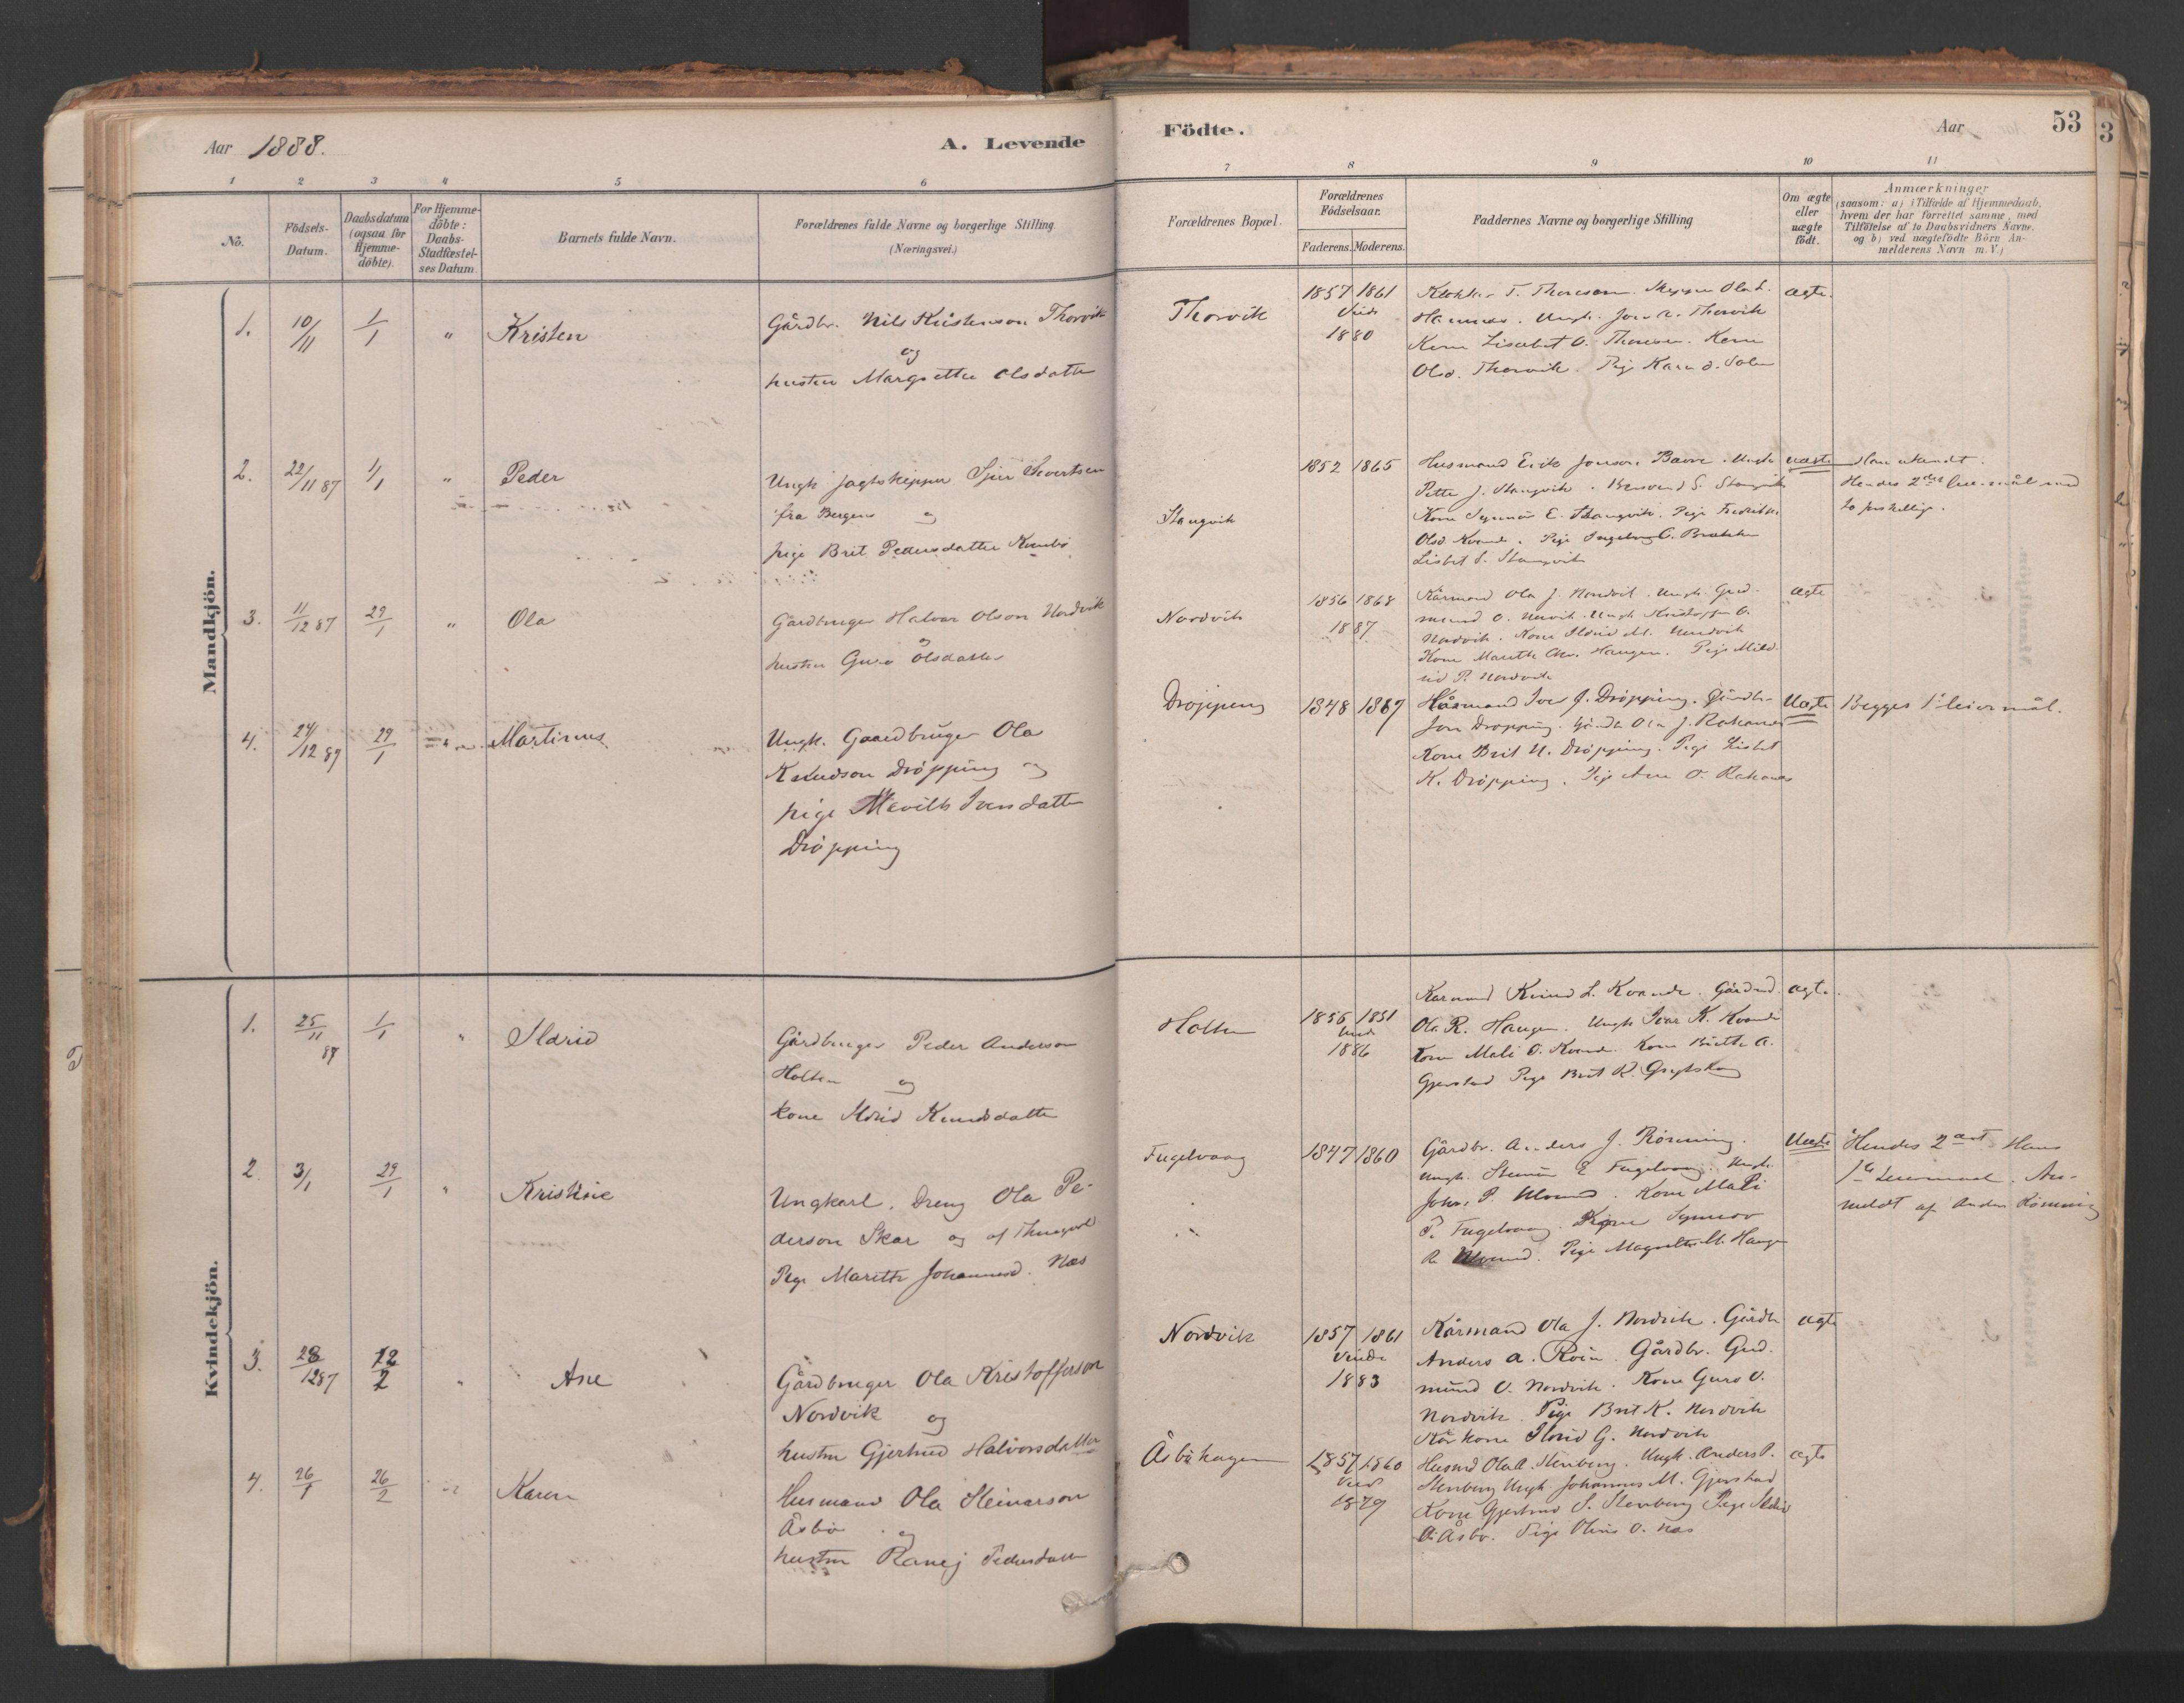 Aar 1888.
A. Levende
Födte.
Aar
53
1 2 3 4 5 6
7 8 9 10 11
Nö.
Födsels-
Datum.
Daabsdatum
(ogsaa for
Hjemme-
döbte).
For Hjemme-
döbte:
Daabs-
Stadfæstel-
ses Datum.
Barnets fulde Navn.
Forældrenes fulde Navne og borgerlige Stilling
(Næringsvei.)
Forældrenes Bopæl.
Forældrenes
Födselsaar.
Faderens. Moderens.
Faddernes Navne og borgerlige Stilling
Om ægte
eller
uægte
födt.
Anmærkninger
(saasom: a) i Tilfælde af Hjemmedaab,
hvem der har forrettet samme, med
Tilföielse af to Daabsvidners Navne,
og b) ved uægtefödte Börn An-
melderens Navn m. V.)
Mandkjön.
1. 10/11 1/1 " Kristen
Gårdbr. Nils Kristenson Thorvik
og
hustru Margrethe Olsdatter
Thorvik
1857 1861
Viede
1880
Klokker T. Thoresen. Skipper Ola
Hannes. Ungk. Jon Thorvik
Kone Lisabet O. Thoresen. Kone
Olsd. Thorvik. Pige Karen
ægte.
2. 22/11 87 1/1 " Peder
Ungk. jagtskipper Sjur Sivertsen
fra Bergen og
pige Brit Pedersdatter
Stangvik
1852 1865
Husmand Erik Jonsen Bævre. Ungk.
Petter J. Stangvik. S. Stangvik
Kone Synnöv E. Stangvik. Pige Fredrikke
Olsd Kvande. Pige Ingeborg O.
Lisbet S. Stangvik
uægte
Han ukendt.
Hendes 2det leiermål med
to forskellige.
3. 11/12 87 29/1 " Ola
Gårdbruger Halvor Olson Nordvik
og
hustru Guro Olsdatter
Nordvik
1856 1868
1887
Kårmand Ola J. Nordvik. Ungk. Gud-
mund O. Nordvik. Ungk Kristoffer O.
Nordvik. Kone Ildrid M. Nordvik
Kone Marethe Haugen. Pige Mild-
rid P. Nordvik
ægte
4. 24/12 87 29/1 Martinus
Ungk. Gaardbruger Ola
Knudson Dröpping og
pige Marith Iversdatter
Dröpping
Dröpping
1848 1867
Kårmand Iver J. Dröpping. Gårdbr.
Jon Dröpping. Gårdb. Ola J. Rakanes
Kone Brit N. Dröpping. Pige Lisbet
K. Dröpping. Pige Ane O. Rakanes
Uægte
Begges 1ste leiermål.
Kvindekjön.
1. 25/11 87 1/1 " Ildrid
Gårdbruger Peder Anderson
Holten og
kone Ildrid Knudsdatter
Holten
1856 1851
Viede
1886
Kårmand Knud L. Kvande. Gårdbr.
Ola R. Haugen. Ungk Ivar K. Kvande
Kone Mali O. Kvande. Kone Brithe A.
Gjerstad Pige Brit K.
ægte.
2. 3/1 29/1 " Kristine
Ungkarl. Dreng Ola Pe-
derson Skar og af Thingvold
Pige Marethe Johannesd. Næs
Fugelvaag
1847 1860
Gårdbr. Anders J. Rönning.
Ungk. E Fugelvaag. Ungk.
Johs. P. Ulvund. Kone Mali
P. Fugelvaag. Kone Synnöv
R. Ulvund. Pige Magrethe M. Haugen
Uægte
Hendes 2det Hans
1ste Leiermaal. An-
meldt af Anders Rönning
3. 28/12 87 12/2 " Ane
Gårdbruger Ola Kristofferson
Nordvik og
hustru Gjertrud Halvorsdatter
Nordvik
1857 1861
Viede
1883
Kårmand Ola J. Nordvik. Gårdb
Anders A. Röen. Gårdbr. Gud-
mund O. Nordvik. Kone Guro O.
Nordvik. Pige Brit K. Nordvik
Kår kone Ildrid G. Nordvik
ægte
4. 26/1 26/2 " Karen
Husmand Ola Steinarson
Åsbö og
hustru Ranej Pedersdatter
Åsböhagen
1857 1860
Viede
1879
Husmd Ola A. Stenberg. Ungk. Anders P.
Stenberg Ungk. Johannes M. Gjerstad
Kone Gjertrud S. Stenberg Pige Ildrid
O. Åsbö. Pige Oline O. Næs
ægte